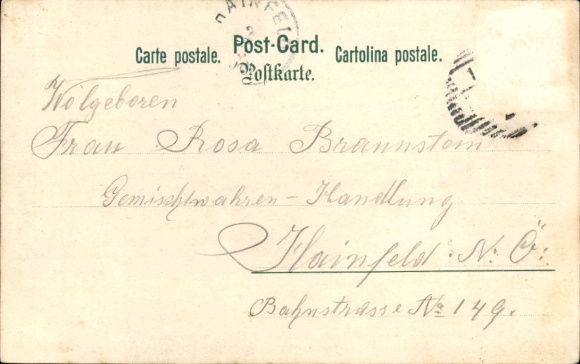 HAINFEL
Carte postale. Post-Card. Cartolina postale.
Postkarte.
Wolgeboren
Frau Rosa Braunstein
Gemischtwahren-Handlung
Hainfeld N. Ö:
Bahnstrasse No 149.